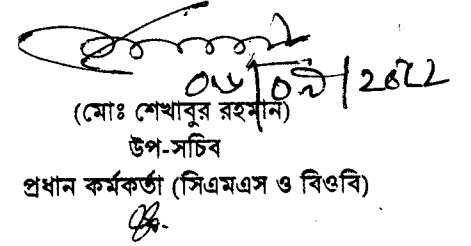 ০৬/০৯/২০২২
(মোঃ শেখাবুর রহমান)
উপ-সচিব
প্রধান কর্মকর্তা (সিএমএস ও বিওবি)